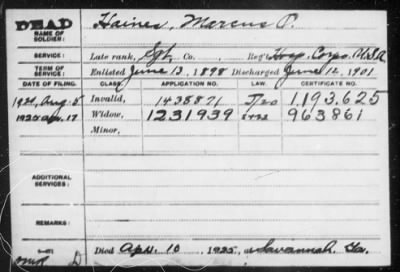 DEAD Haines, Marcus P.
NAME OF SOLDIER:
SERVICE: Late rank, Sgt Co. Reg't Hosp. Corps. U.S.A
TERM OF SERVICE: Enlisted June 13, 1898 Discharged June 12, 1901
DATE OF FILING. CLASS. APPLICATION NO. LAW. CERTIFICATE NO.
1921, Aug. 5 Invalid, 1435871 1.193.625
1925 Apr. 17 Widow, 1231939 963861
Minor,
ADDITIONAL SERVICES:
REMARKS:
Died Apr. 10 1925, at Savannah, Ga.